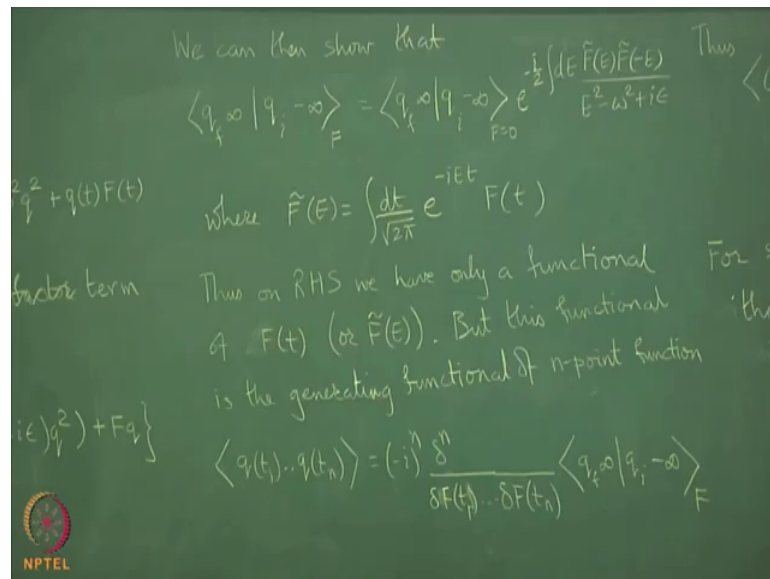 We can then show that
⟨q_f ∞ | q_i -∞⟩_F = ⟨q_f ∞ | q_i -∞⟩_{F=0} e^{-i/2 ∫dE F̃(E)F̃(-E) / E²-ω²+iε}
Thus
²q² + q(t)F(t)
where F̃(E) = ∫ dt/√2π e^{-iEt} F(t)
factor term
Thus on RHS we have only a functional
of F(t) (or F̃(E)). But this functional
is the generating functional of n-point function
iε)q²) + Fq}
⟨q(t₁)..q(t_n)⟩ = (-i)ⁿ δⁿ / δF(t₁)...δF(t_n) ⟨q_f ∞ | q_i -∞⟩_F
For
NPTEL